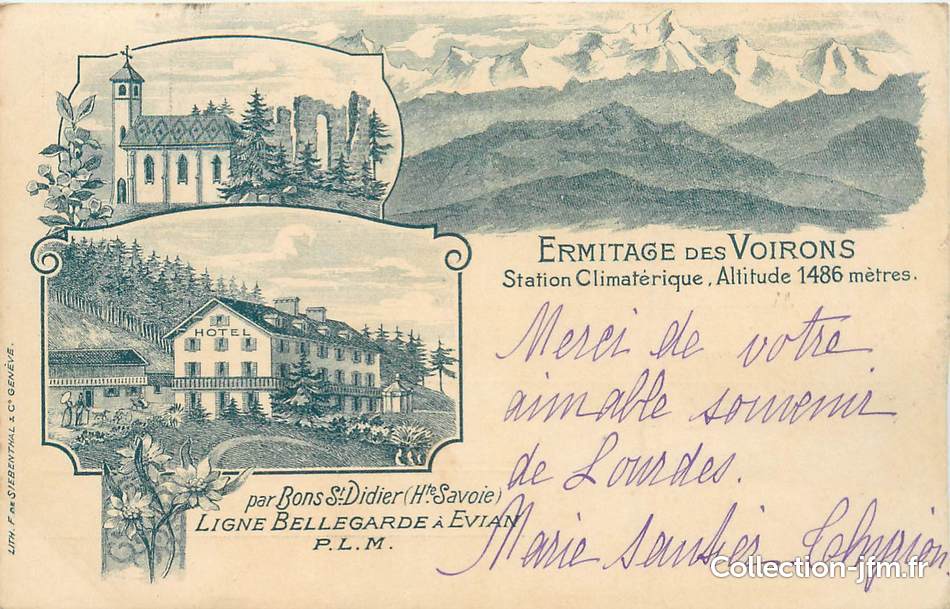 HOTEL
ERMITAGE DES VOIRONS
Station Climatérique, Altitude 1486 mètres.
Merci de votre
aimable souvenir
de Lourdes.
Marie
par Bons St-Didier (Hte Savoie)
LIGNE BELLEGARDE À EVIAN
P.L.M.
LITH. F. DE SIEBENTHAL & Co GENÈVE.
Collection-jfm.fr